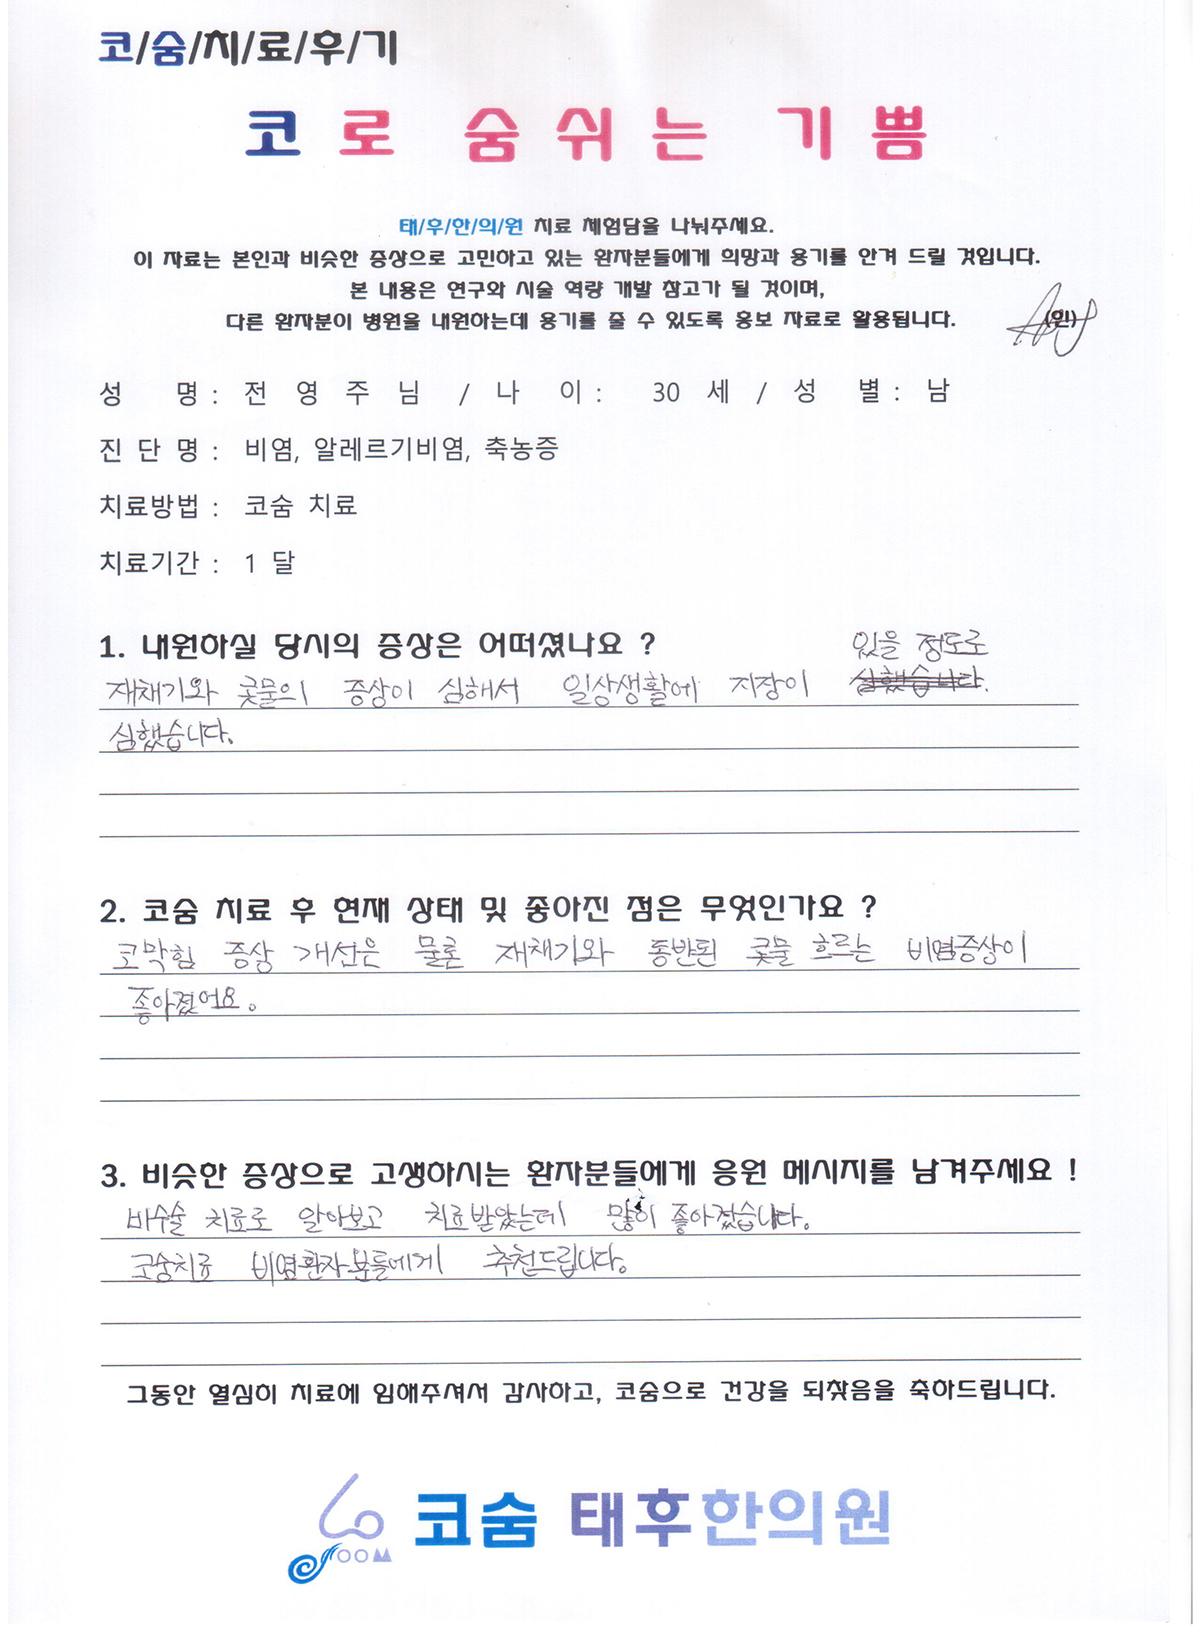 코/숨/치/료/후/기
코로 숨쉬는 기쁨
태/후/한/의/원 치료 체험담을 나눠주세요.
이 자료는 본인과 비슷한 증상으로 고민하고 있는 환자분들에게 희망과 용기를 안겨 드릴 것입니다.
본 내용은 연구와 시술 역량 개발 참고가 될 것이며,
다른 환자분이 병원을 내원하는데 용기를 줄 수 있도록 홍보 자료로 활용됩니다. (인)
성 명 : 전 영 주 님 / 나 이 : 30 세 / 성 별 : 남
진 단 명 : 비염, 알레르기비염, 축농증
치료방법 : 코숨 치료
치료기간 : 1 달
1. 내원하실 당시의 증상은 어떠셨나요 ?
있을 정도로
재채기와 콧물의 증상이 심해서 일상생활에 지장이 심했습니다.
심했습니다.
2. 코숨 치료 후 현재 상태 및 좋아진 점은 무엇인가요 ?
코막힘 증상 개선은 물론 재채기와 동반된 콧물 흐르는 비염증상이
좋아졌어요.
3. 비슷한 증상으로 고생하시는 환자분들에게 응원 메시지를 남겨주세요 !
비수술 치료로 알아보고 치료받았는데 많이 좋아졌습니다.
코숨치료 비염환자분들에게 추천드립니다.
그동안 열심히 치료에 임해주셔서 감사하고, 코숨으로 건강을 되찾음을 축하드립니다.
코숨 태후한의원